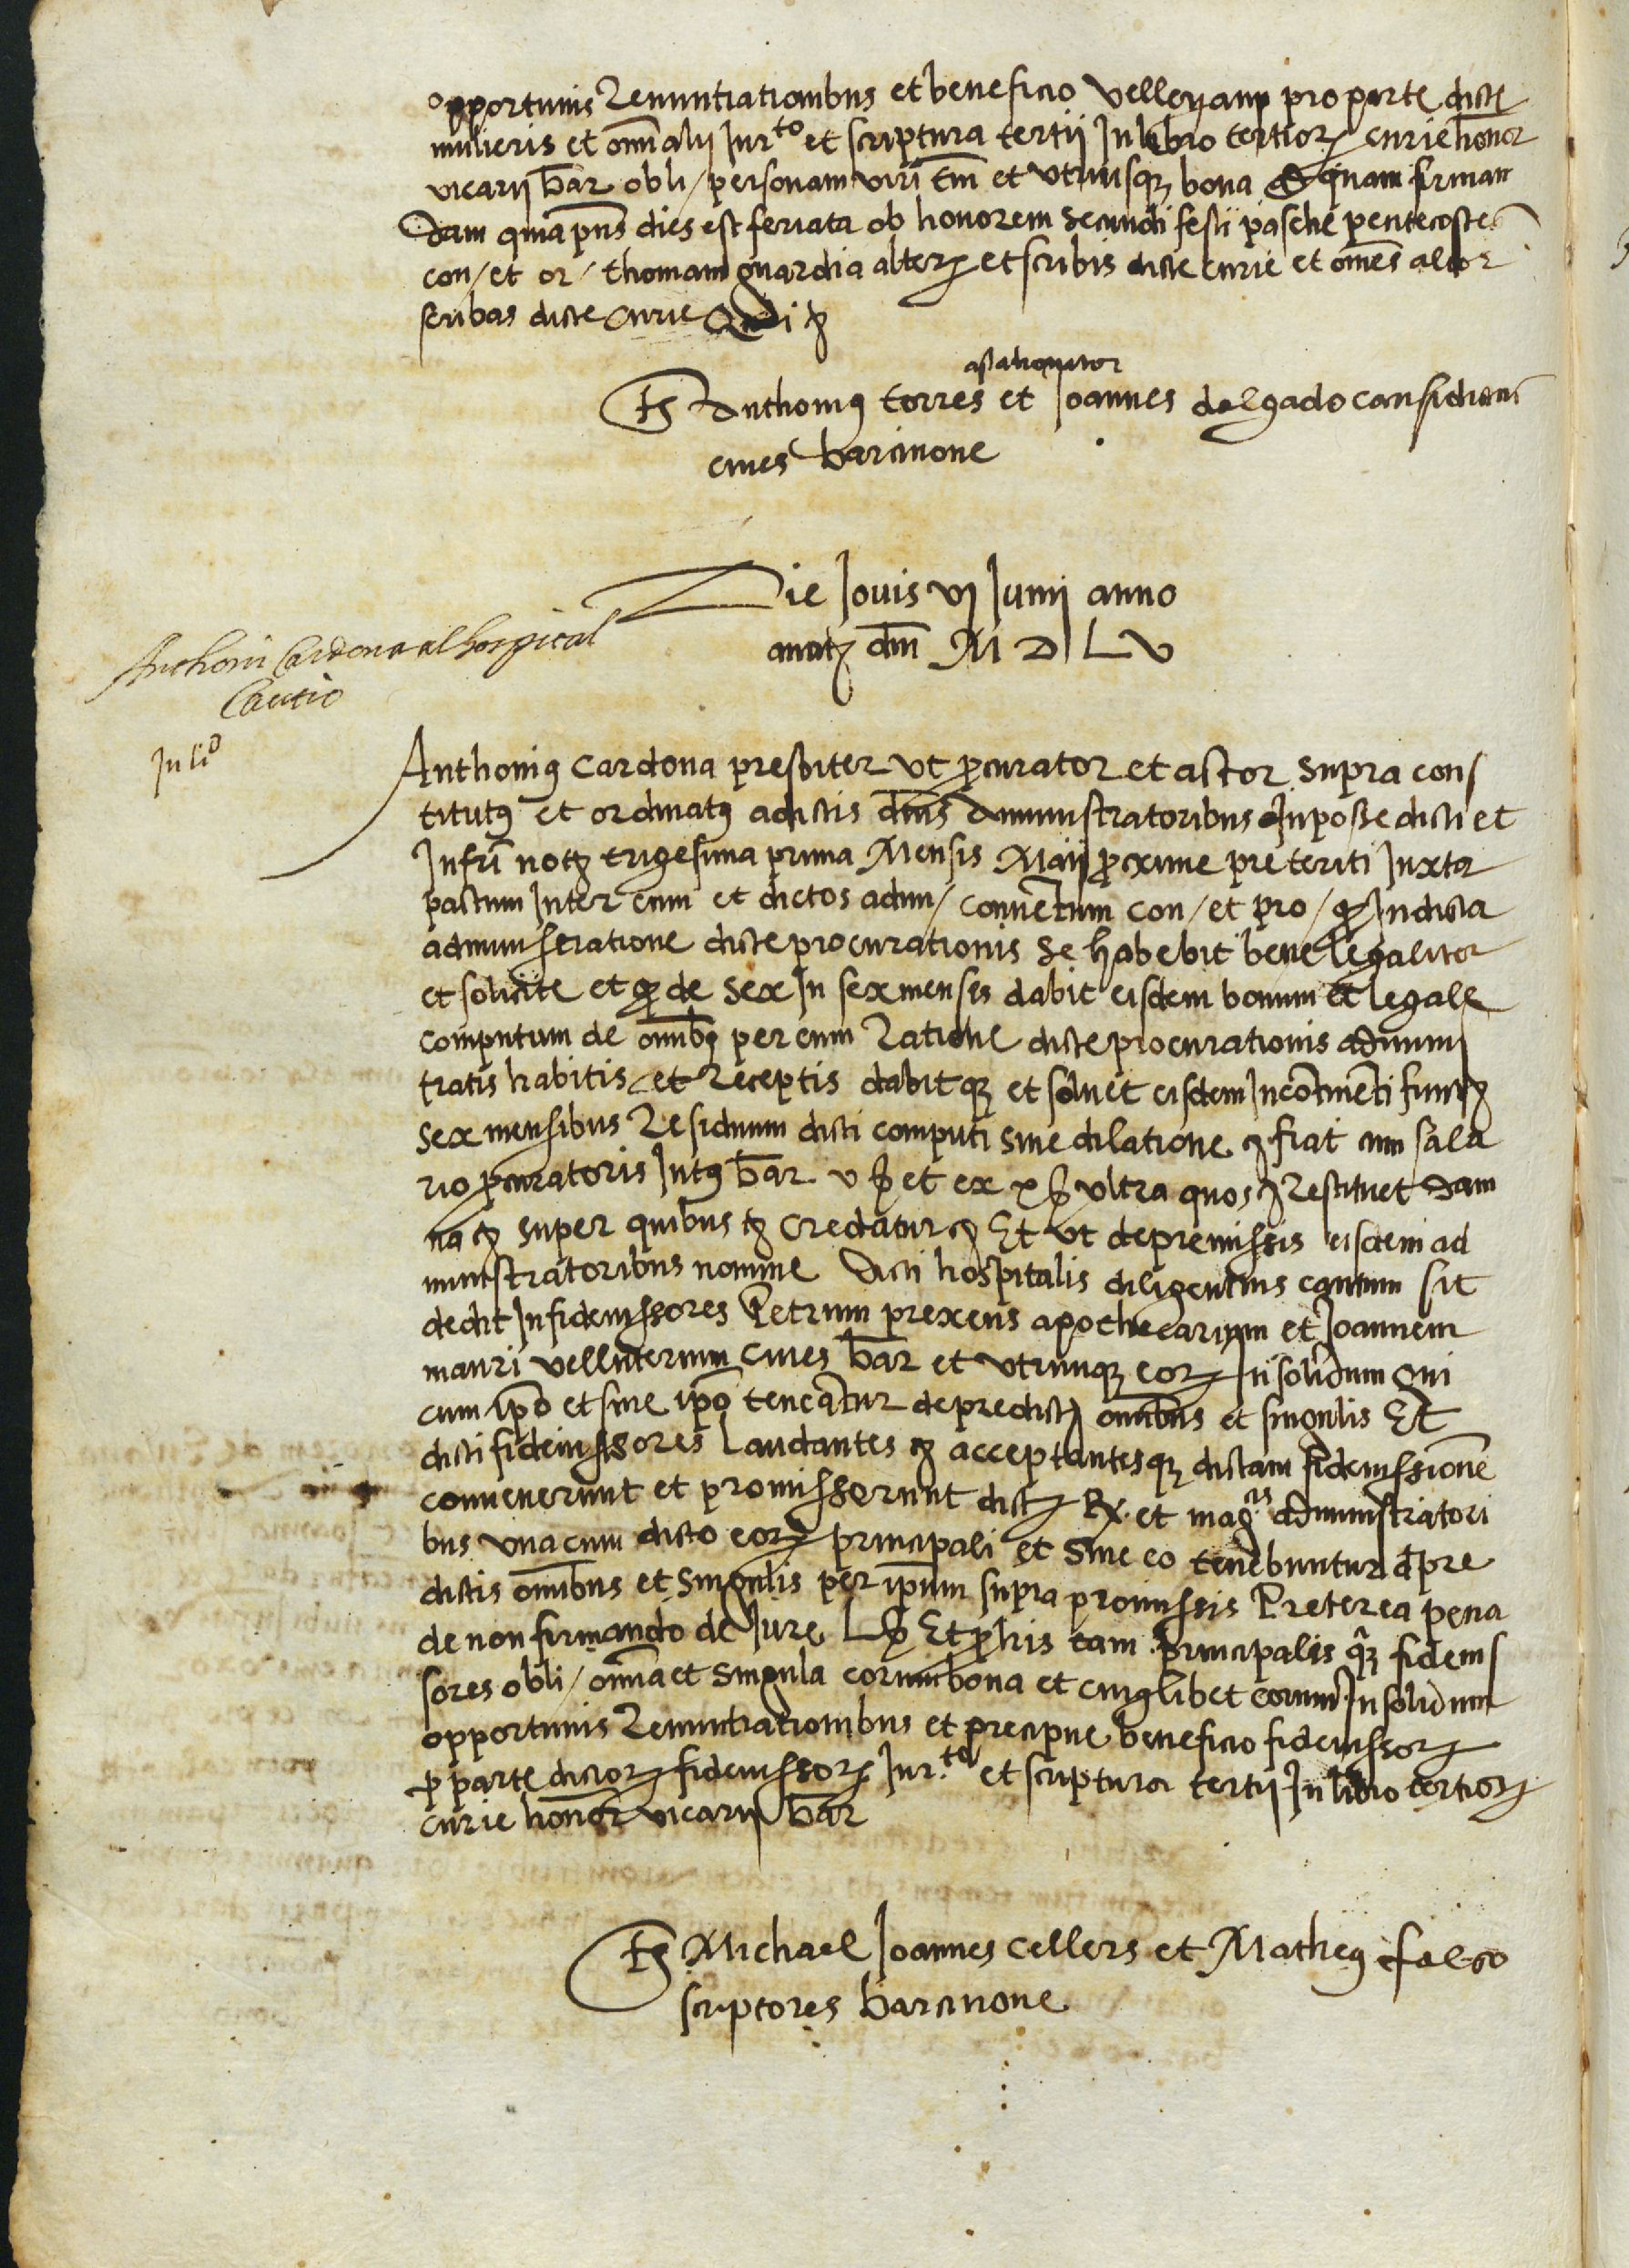 opportunis Renuntiationibus et beneficio velleyani pro parte dicte
mulieris et omni alij Jurto et scriptura tertij Jn libro tertior curie honor
vicarij bar obli / personam viri tm et utriusq bona quam firman
dam quia pns dies est feriata ob honorem secundi festi pasche pentecostes
con / et or / thomam guardia alter et scribis dicte curie et omnes alios
scribas dicte curie
astationator
Ts Anthonius torres et Joannes delgado causidicus
cives barcinone
Die Jovis vj Junij anno
anatz dni M D L V
Anthoni Cardona al hospital
Cautio
Jn lio
Anthonius Cardona presbiter ut procurator et actor supra cons
titutus et ordinatus a dictis dnis Administratoribus Jn posse dicti et
Jnfri not trigesima prima Mensis Maij proxime preteriti Juxta
pactum Jnter eum et dictos admi / conventum con / et pro / quod Jn dicta
administratione dicte procurationis se habebit bene legaliter
et solicite et quod de sex Jn sex menses dabit eisdem bonum et legale
computum de omnibus per eum Ratione dicte procurationis adminis
tratis habitis et Receptis dabitque et solvet eisdem Jncontinenti finitis
sex mensibus Residuum dicti computi sine dilatione et fiat cum sala
rio procuratoris Jntus bar v s et ex x s ultra quos et Restituet dam
na et super quibus et credatur et Et ut de premissis eisdem ad
ministratoribus nomine dicti hospitalis diligentius cautum sit
dedit Jn fideiussores Petrum prexens apothecarium et Joannem
mauri velluterium cives bar et utrumque eor Jn solidum Qui
cum ipso et sine ipso teneantur de predictis omnibus et singulis Et
dicti fideiussores laudantes et acceptantesque dictam fideiussionem
convenerunt et promisserunt dictis Rx. et magcis administratori
bus una cum dicto eor principali et sine eo tenebuntur de pre
dictis omnibus et singulis per ipsum supra promissis Preterea pena
de non firmando de Jure L s Et pro his tam Principalis quam fideius
sores obli / omnia et singula eorum bona et cuiuslibet eorum Jn solidum
opportunis Renuntiationibus et precipue beneficio fideiussor
pro parte dictor fideiussor Jur.to et scriptura tertij Jn libro tertior
curie honor vicarij bar
Ts Michael Joannes Cellers et Matheus falco
scriptores barcinone